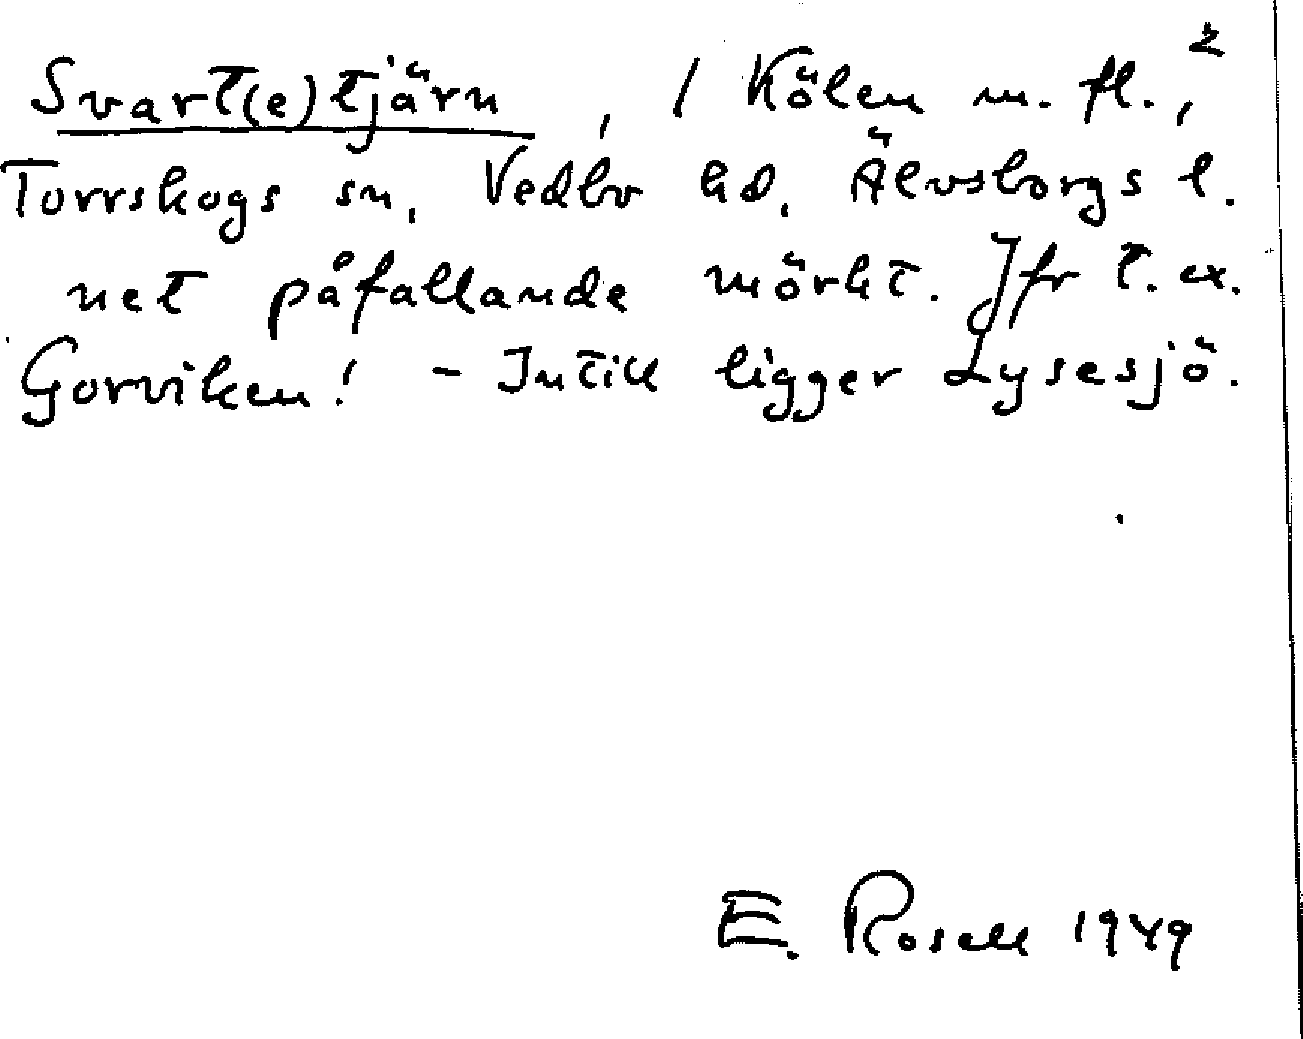 Svart(e)tjärn, / Kölen m. fl.,²
Torrskogs sn, Vedbo hd, Älvsborgs l.
net påfallande mörkt. Jfr t. ex.
Gorviken! - Intill ligger Lysesjö.
E. Rosell 1949